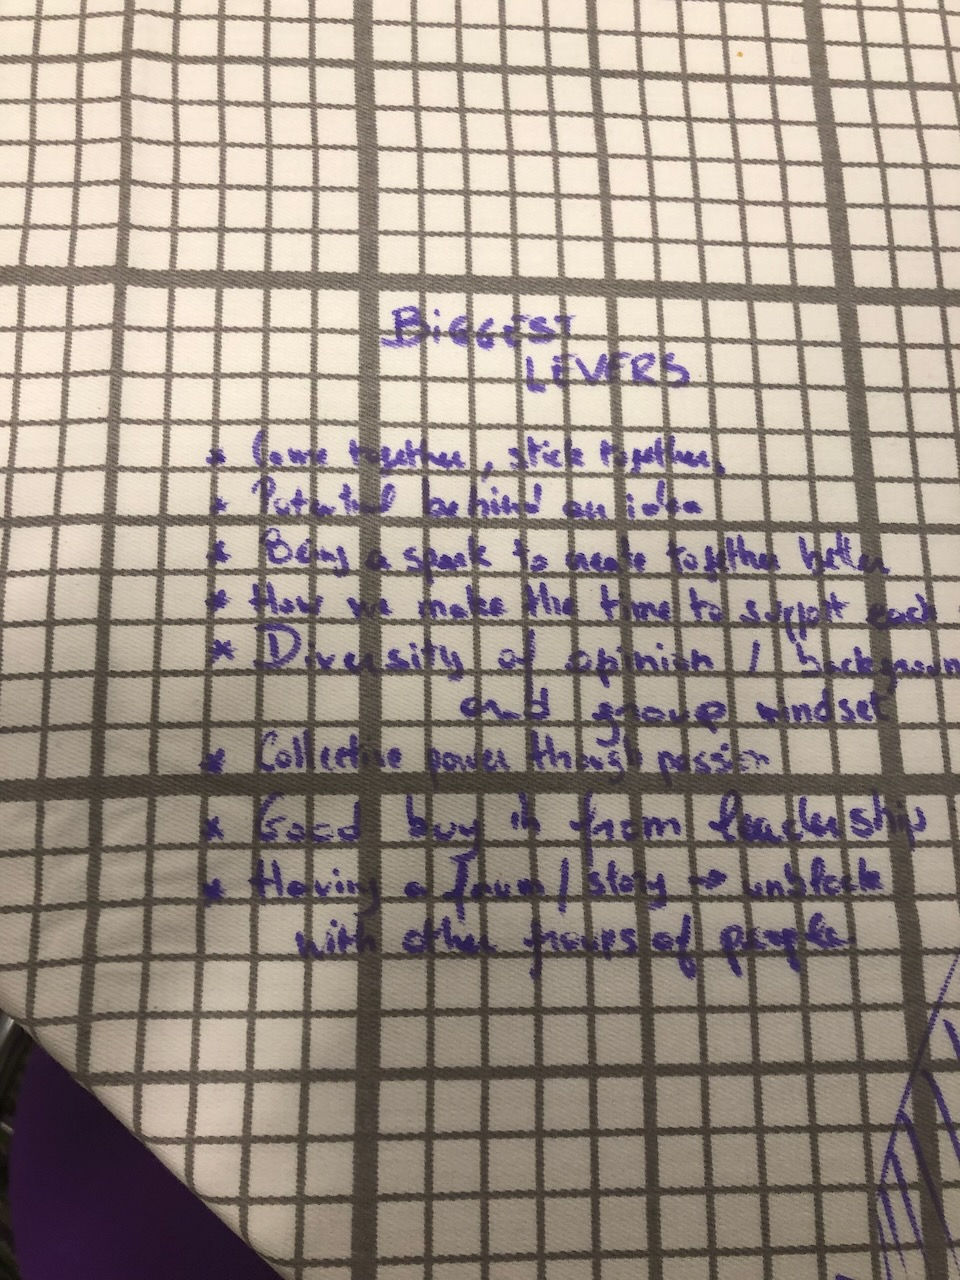 BiGGEST
LEVERS
* Come together, stick together.
* Potential behind an idea
* Being a spark to create together better
* How we make the time to support each
* Diversity of opinion / backgroun
and group mindset
* Collective power through passion
* Good buy in from leadership
* Having a / story → unblock
with other groups of people